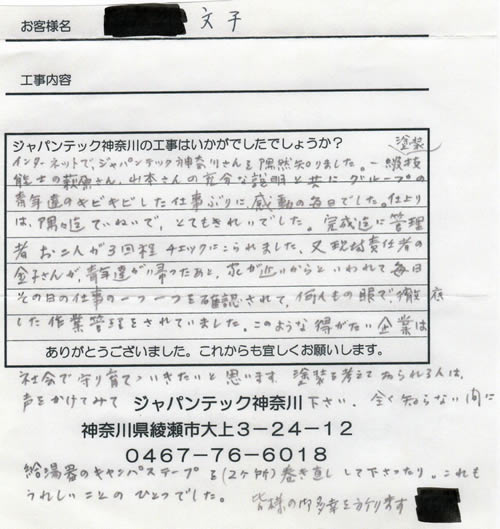 お客様名 文子
工事内容
ジャパンテック神奈川の工事はいかがでしたでしょうか?
塗装
インターネットで、ジャパンテック神奈川さんを偶然知りました。一級技
能士の萩原さん、山本さんの充分な説明と共にグループの
青年達のキビキビした仕事ぶりに感動の毎日でした。仕上り
は、隅々迄ていねいで、とてもきれいでした。完成迄に管理
者お二人が3回程チェックにこられました、又現場責任者の
金子さんが、青年達が帰ったあと、家が近いからといわれて毎日
その日の仕事の一つ一つを確認されて、何人もの眼で、徹底
した作業管理をされていました。このような得がたい企業は
ありがとうございました。これからも宜しくお願いします。
社会で守り育てていきたいと思います 塗装を考えておられる人は、
声をかけてみて ジャパンテック神奈川 下さい、全く知らない間に
神奈川県綾瀬市大上3-24-12
0467-76-6018
給湯器のキャンパステープを(2ヶ所)巻き直しして下さったり。これも
うれしいことのひとつでした。 皆様の御多幸を祈ります